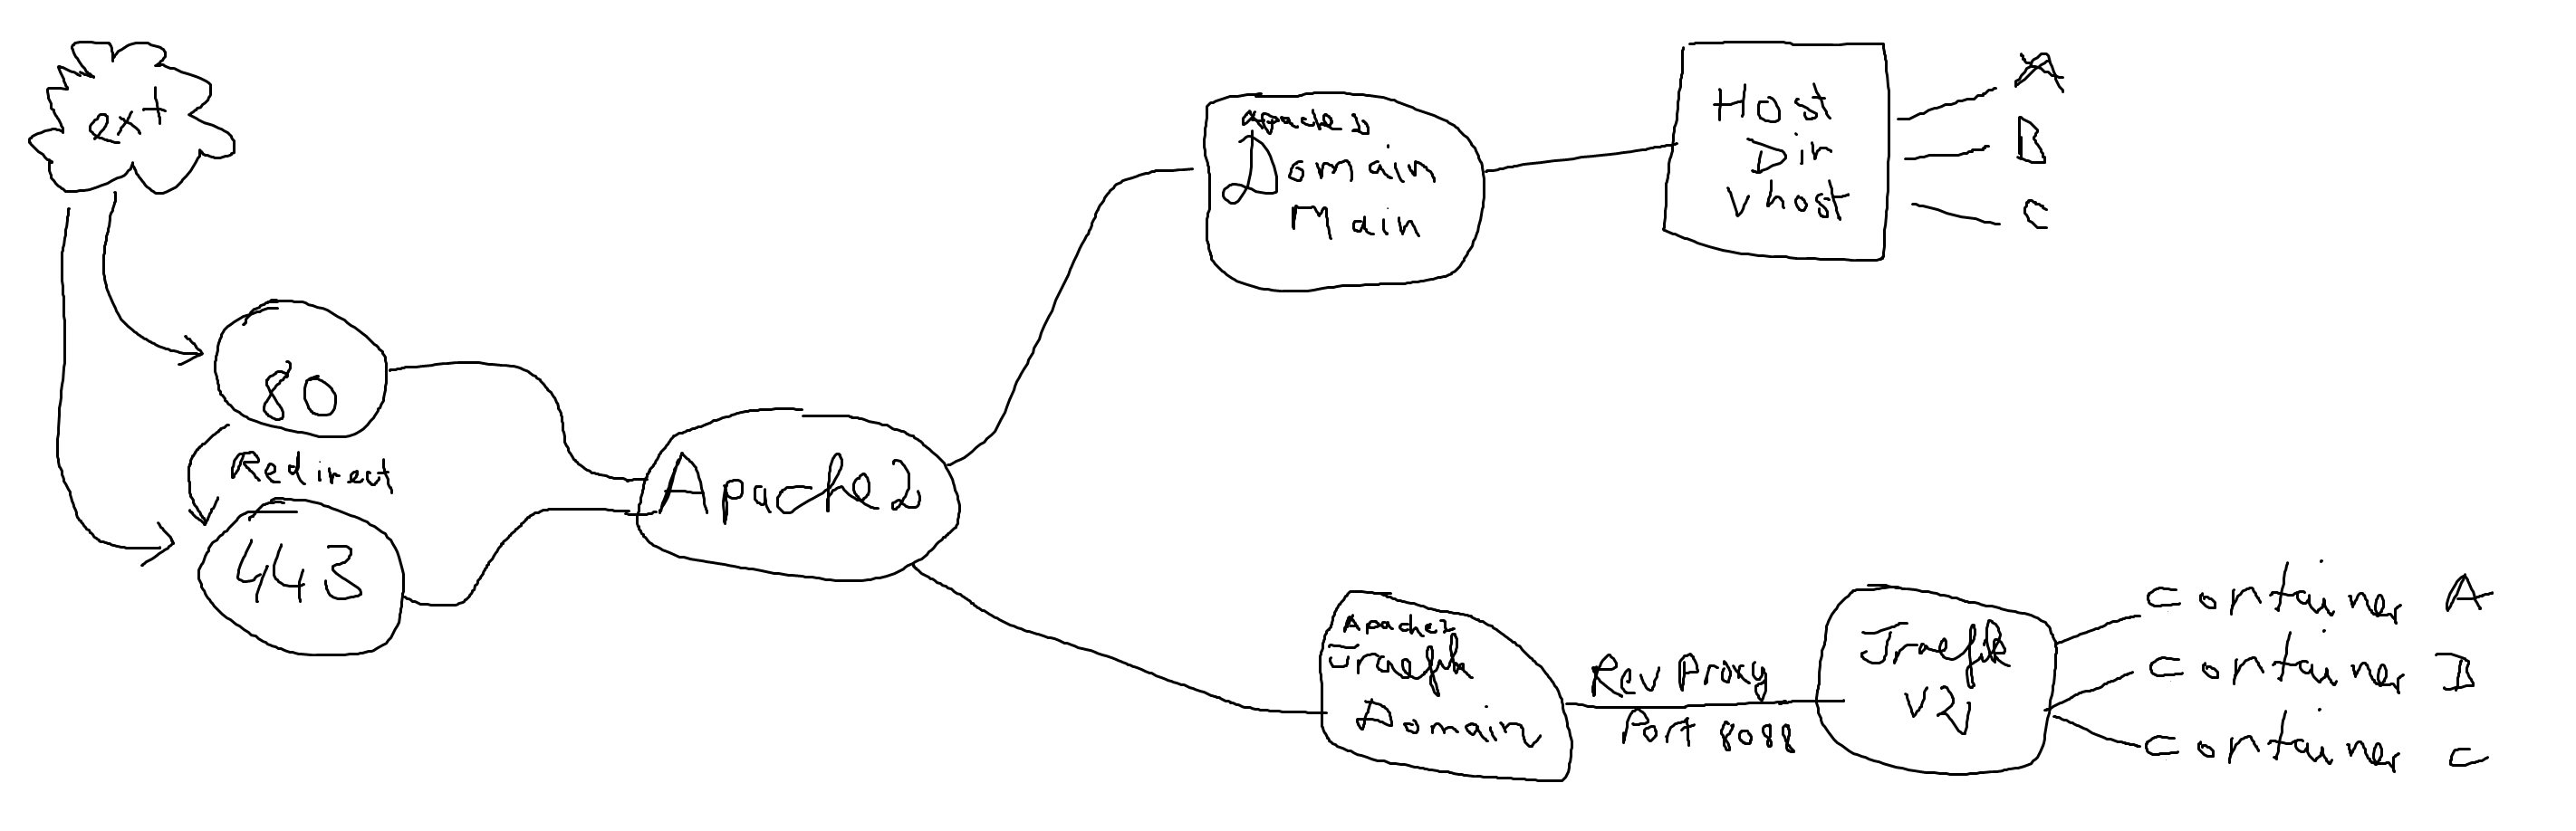 ext
80
Redirect
443
Apache2
apache2
Domain
Main
Host
Dir
vhost
A
B
C
Apache2
Traefik
Domain
Rev Proxy
Port 8088
Traefik
V2
container A
container B
container C